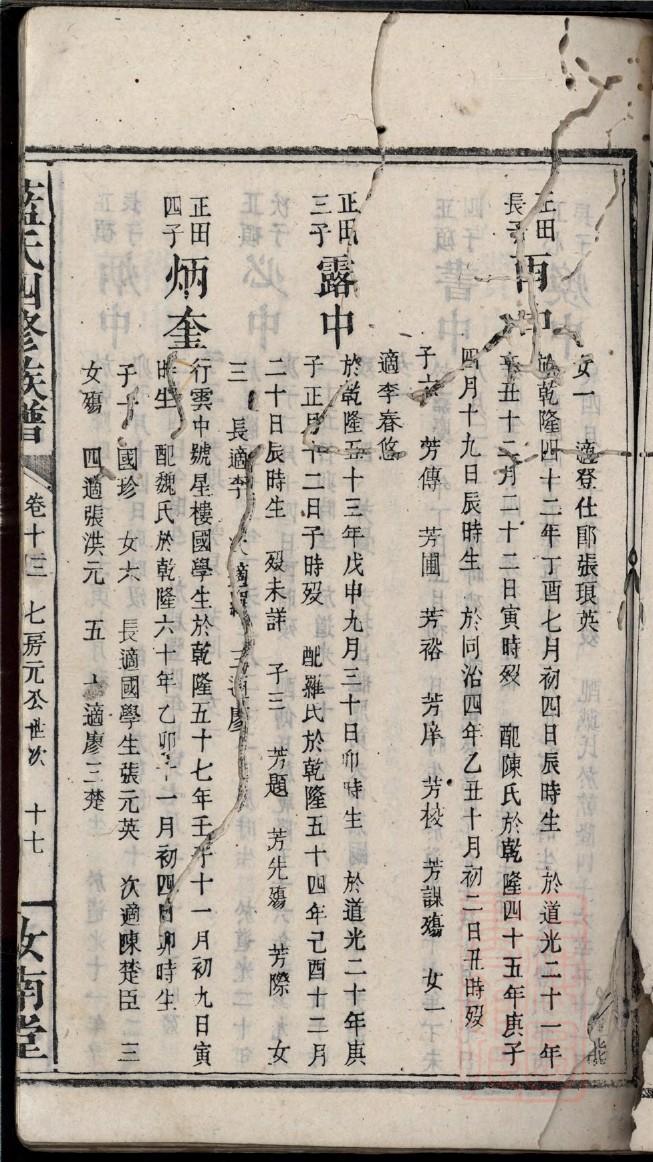 女一　適登仕郎張琅英
正田長子　雨中　於乾隆四十二年丁酉七月初四日辰時生　於道光二十一年
辛丑十二月二十二日寅時歿　配陳氏於乾隆四十五年庚子
四月十九日辰時生　於同治四年乙丑十月初二日丑時歿
子六　芳傳　芳圃　芳裕　芳岸　芳校　芳謀殤　女一
適李春悠
正田三子　露中　於乾隆五十三年戊申九月三十日卯時生　於道光二十年庚
子正月十二日子時歿　配羅氏於乾隆五十四年己酉十二月
二十日辰時生　歿未詳　子三　芳題　芳先殤　芳際　女
三　長適李　次適　三適廖
正田四子　炳奎　行雲中號星樓國學生於乾隆五十七年壬子十一月初九日寅
時生　配魏氏於乾隆六十年乙卯十一月初四日卯時生
子　國珍　女六　長適國學生張元英　次適陳楚臣　三
女殤　四適張洪元　五　六適廖三楚
藍氏四修族譜　卷十三　七房元公世次　十七　汝南堂